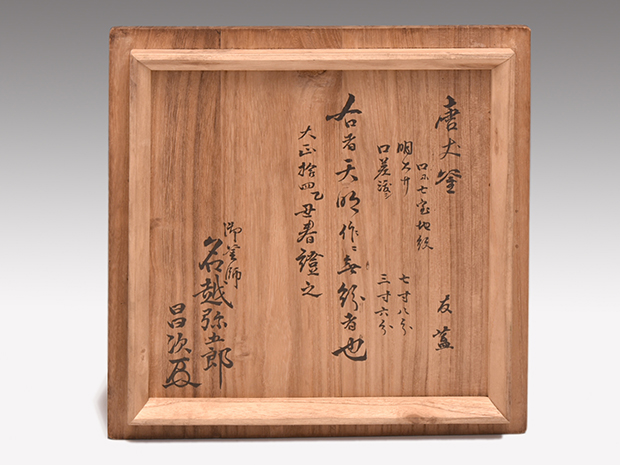 唐犬釜 友蓋
口ニ七宝地紋
七寸八分
口差渡シ 三寸六分
右者天明作ニ無紛者也
大正拾四乙丑春證之
御釜師
名越弥五郎
昌次